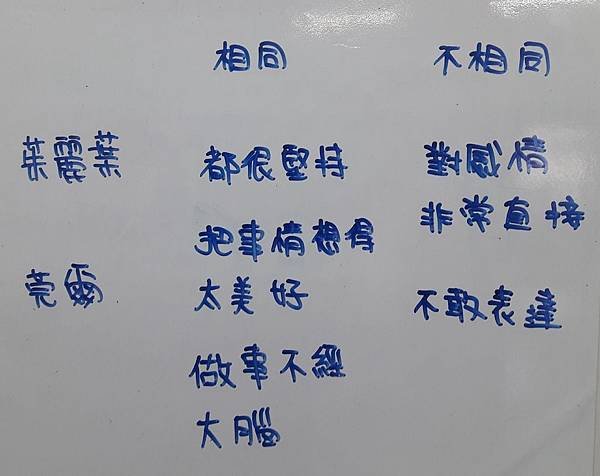 相同 不相同
茱麗葉 都很堅持 對感情
非常直接
把事情想得
莞爾 太美好 不敢表達
做事不經
大腦